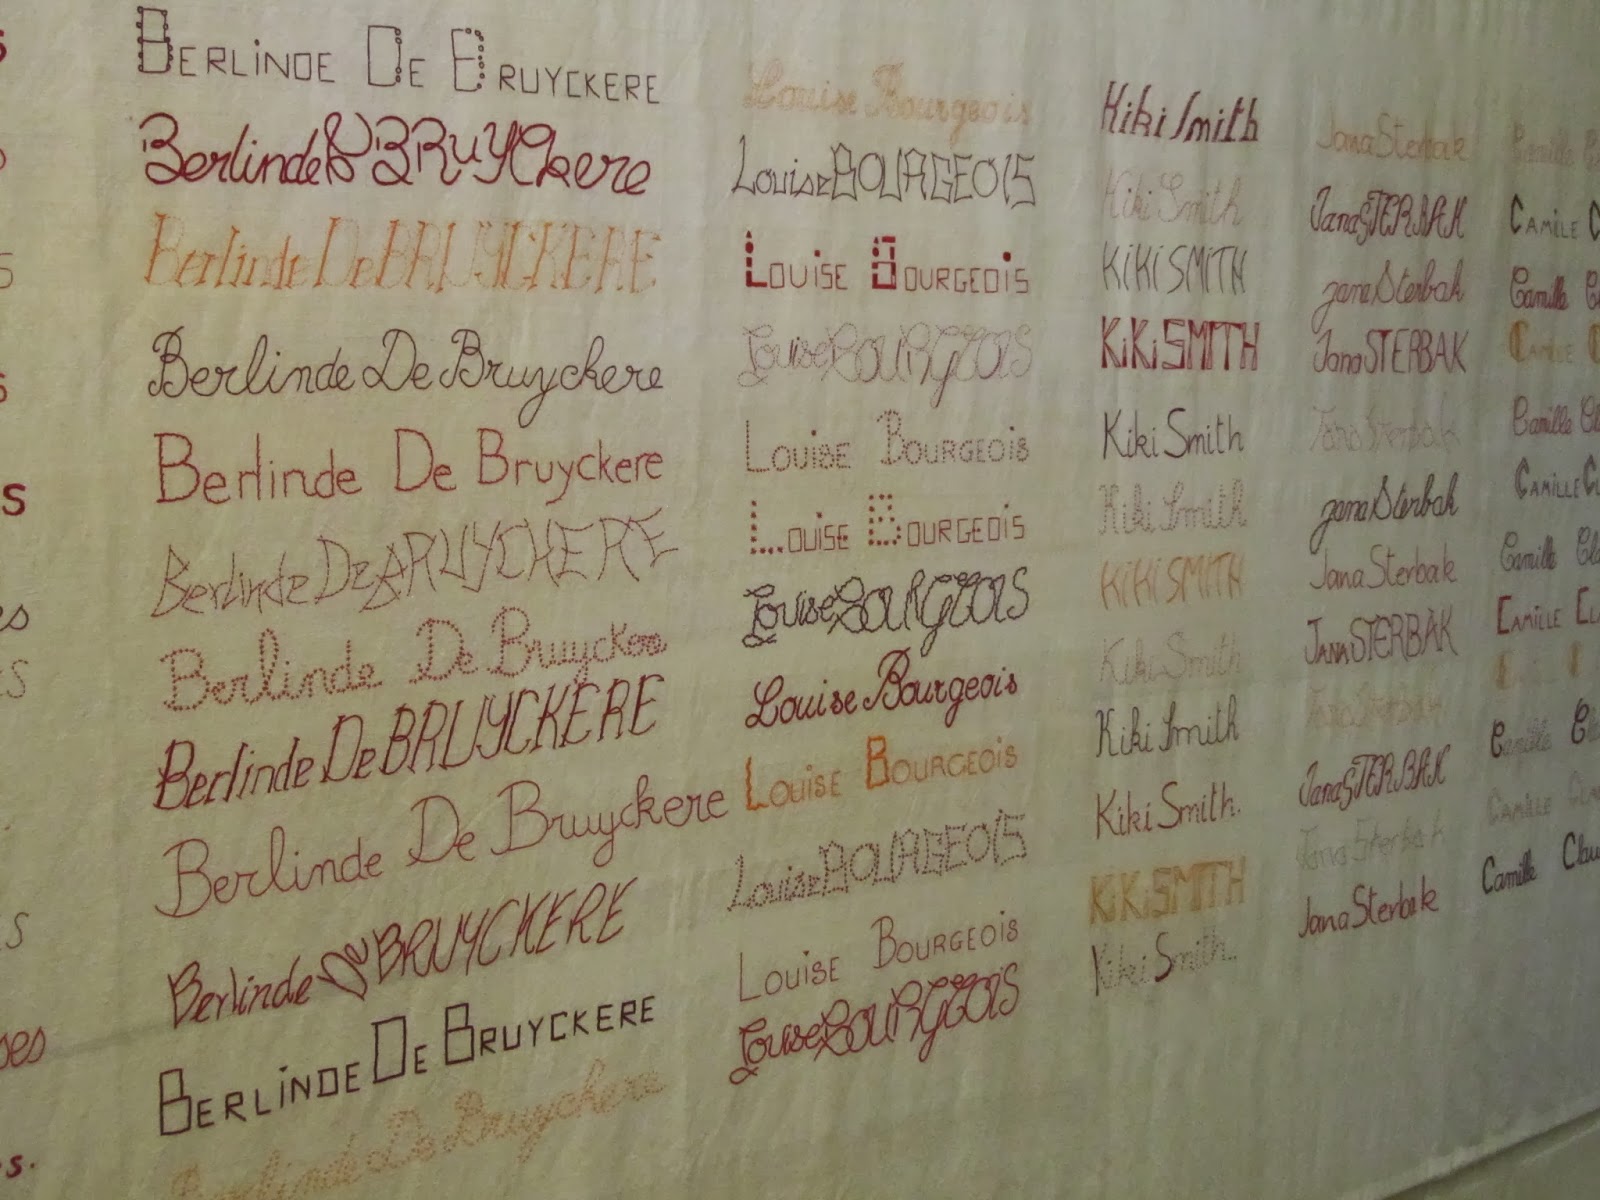 BERLINDE DE BRUYCKERE
Berlinde de BRUYCkere
Berlinde De BRUYCKERE
Berlinde De Bruyckere
Berlinde De Bruyckere
Berlinde De BRUYCKERE
Berlinde De Bruyckere
Berlinde De BRUYCKERE
Berlinde De Bruyckere
Berlinde De BRUYCKERE
BERLINDE DE BRUYCKERE
Berlinde De Bruyckere
Louise Bourgeois
Louise BOURGEOIS
LOUiSE BOURGEOiS
Louise BOURGEOIS
LOUiSE BOURGEOiS
LOUiSE BOURGEOiS
Louise BOURGEOIS
Louise Bourgeois
LOUiSE BOURGEOiS
Louise BOURGEOIS
LOUiSE BOURGEOiS
Louise BOURGEOIS
Kiki Smith
Kiki Smith
KiKi SMITH
KiKi SMITH
Kiki Smith
Kiki Smith
KiKi SMITH
Kiki Smith
Kiki Smith
Kiki Smith.
KiKi SMITH
Kiki Smith..
Jana Sterbak
Jana STERBAK
jana Sterbak
Jana STERBAK
Jana Sterbak
jana Sterbak
Jana Sterbak
JANA STERBAK
Jana Sterbak
Jana STERBAK
Jana Sterbak
Jana Sterbak
Camille
CAMiLLE C
Camille C
CAMiLLE C
Camille Cl
CAMiLLE CL
Camille Cla
CAMiLLE CLA
Camille Cl
CAMiLLE CLA
Camille Clau